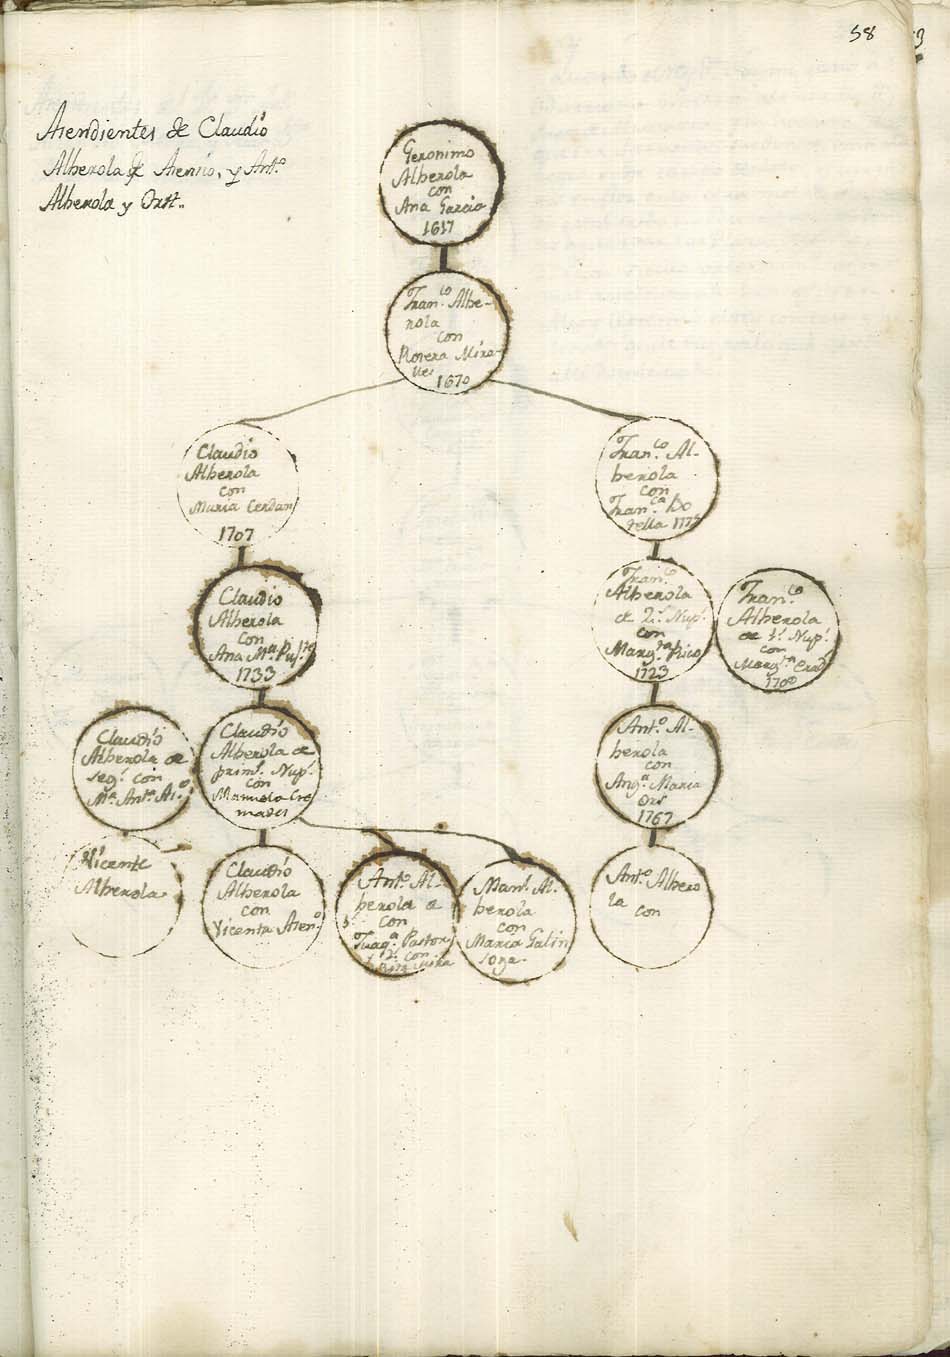 58
Asendientes de Claudio
Alberola de Asensio, y Ant.º
Alberola y Orts.
Geronimo
Alberola
con
Ana Garcia
1617
Fran.co Albe-
rola
con
Rosera Mira-
lles 1670
Claudio
Alberola
con
Maria Cerdan
1707
Fran.co Al-
berola
con
Fran.ca Bo
tella
Claudio
Alberola
con
Ana M.ª
1733
Fran.co
Alberola
de 2.s Nup.s
con
Marg.ta Rico
1723
Fran.co
Alberola
de 1.s Nup.s
con
Marg.ta
1700
Claudio
Alberola de
seg.s con
M.ª Ant.ª
Claudio
Alberola de
prim.s Nup.s
con
Manuela Cre
mades
Ant.º Al-
berola
con
Ang.ª Maria
Orts
1767
Vicente
Alberola
Claudio
Alberola
con
Vicenta Asen.º
Ant.º Al-
berola de
con
Juaq.ª Pastor
y 2.s con
Man.l Al-
berola
con
Maria Galin
soga
Ant.º Albero
la con